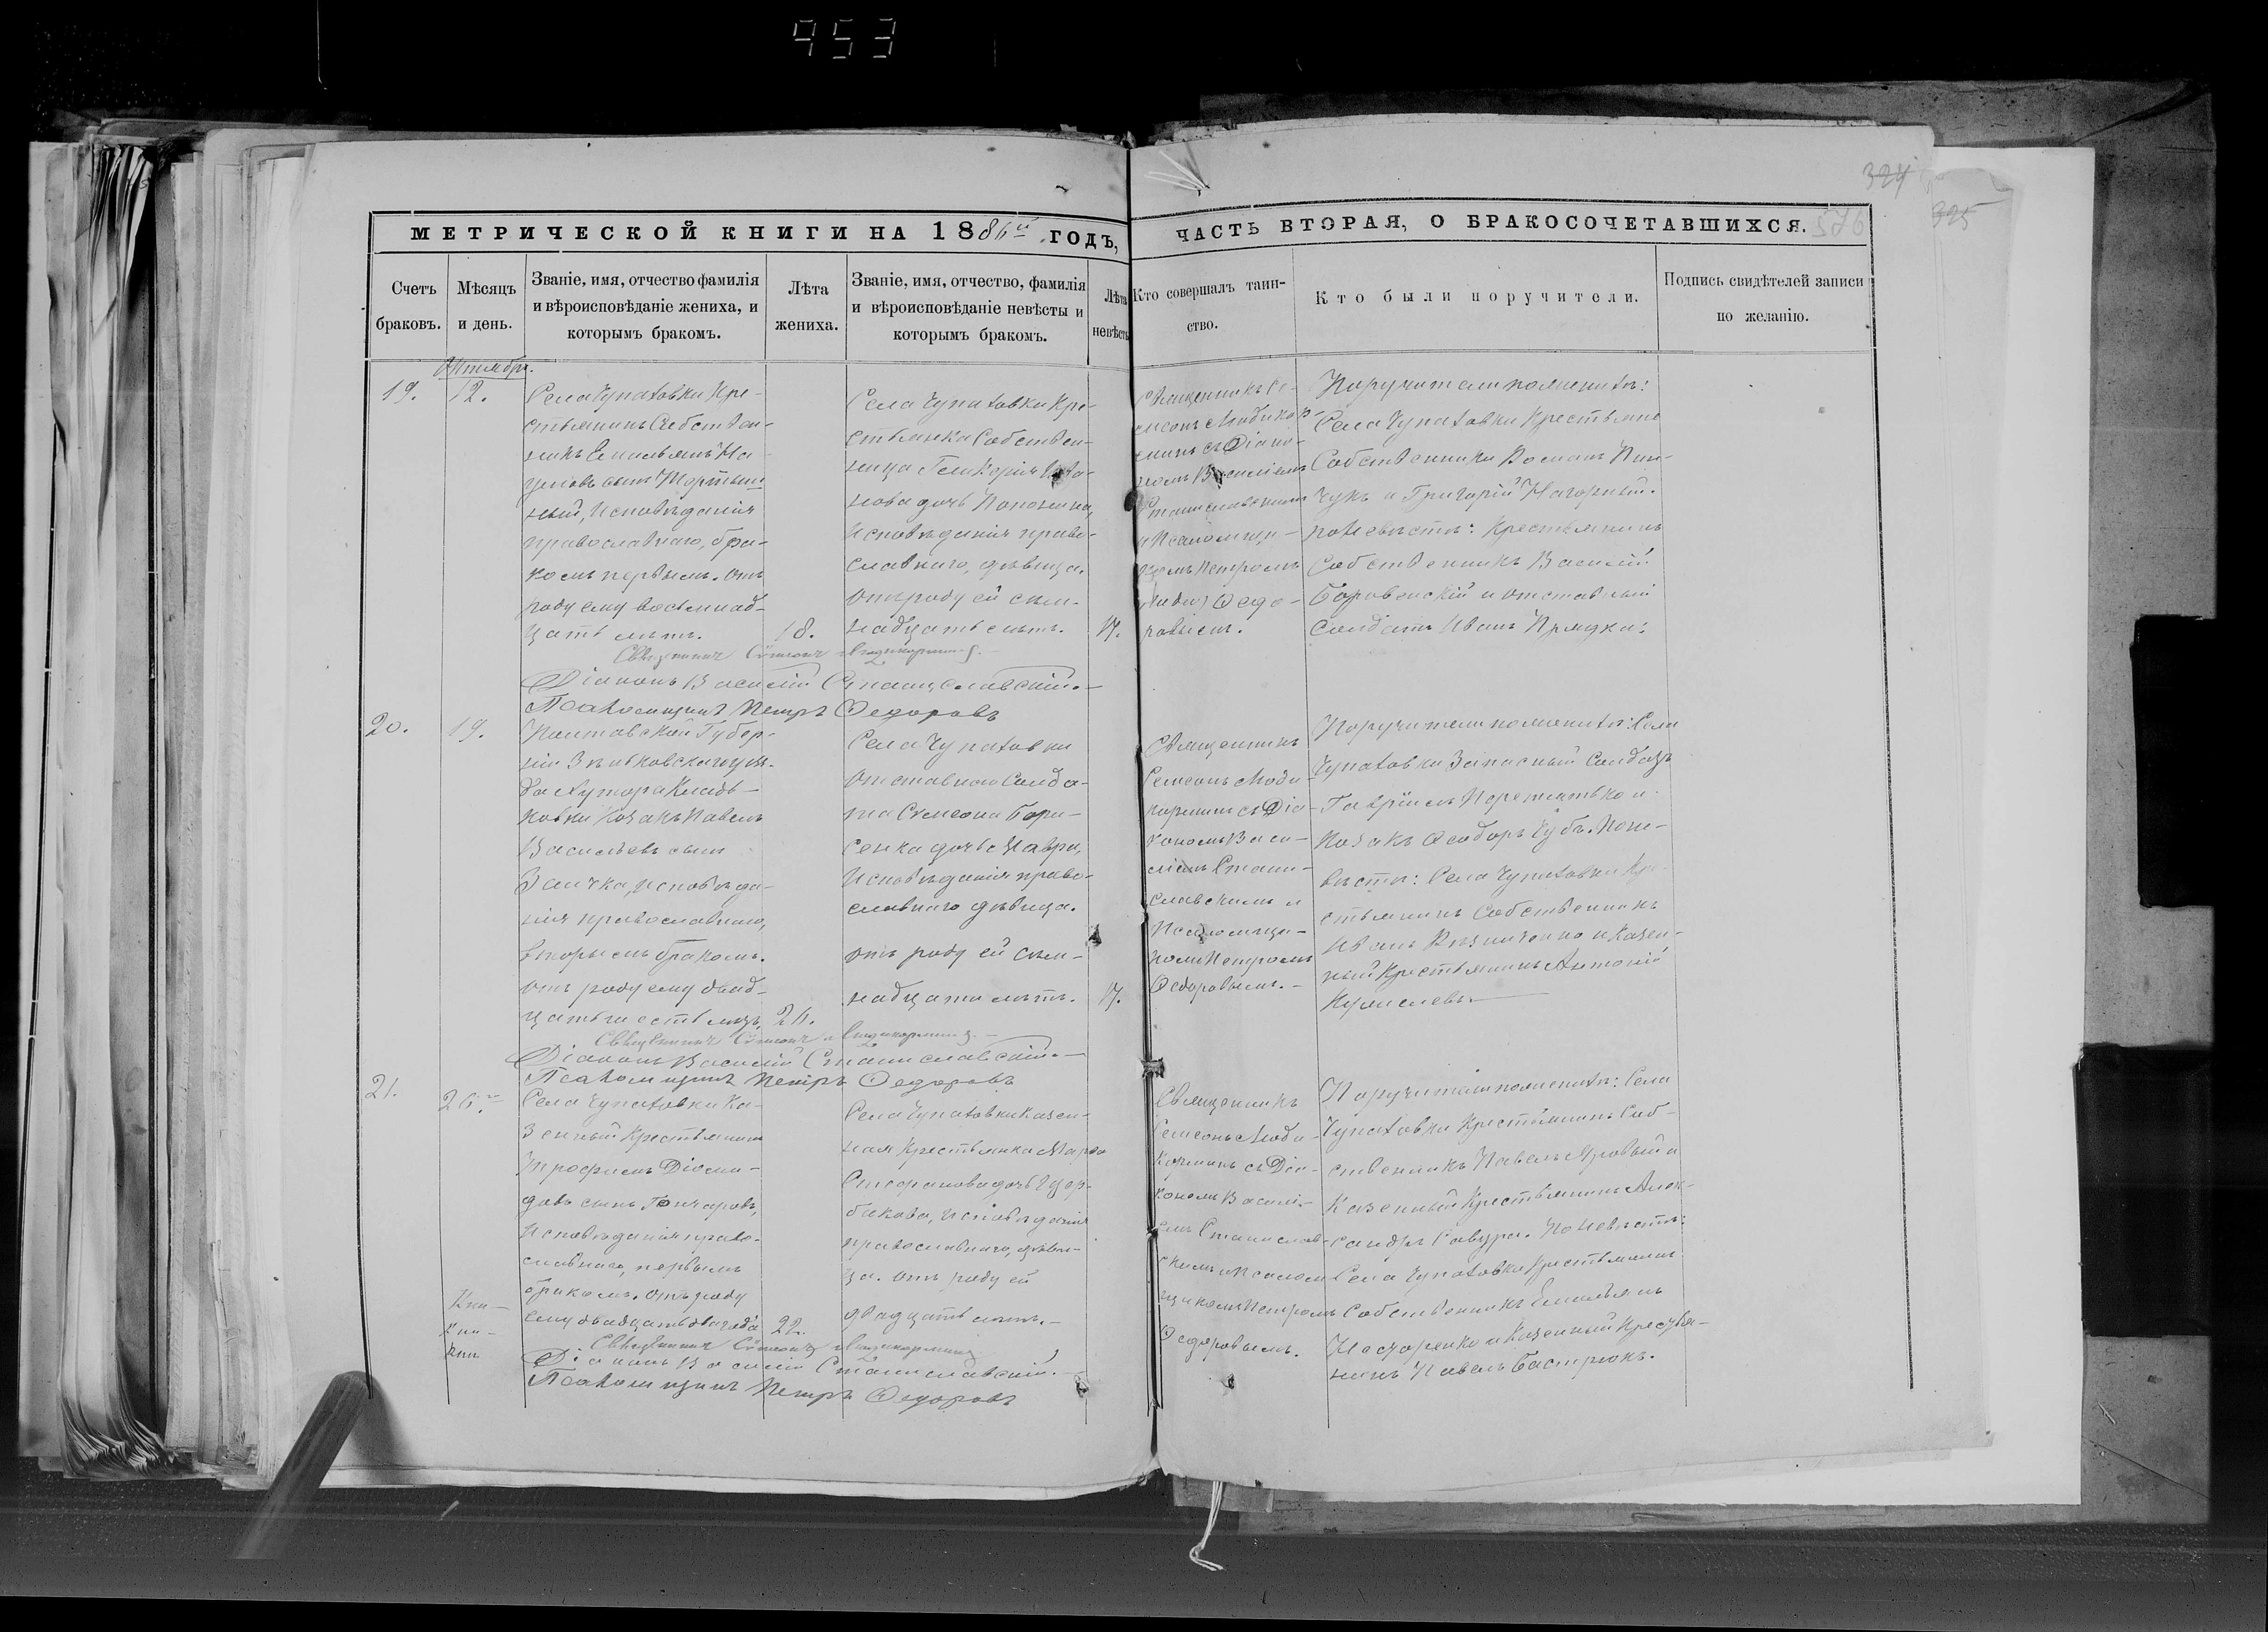 953
324
325
576
МЕТРИЧЕСКОЙ КНИГИ НА 1886й ГОДЪ,
ЧАСТЬ ВТОРАЯ, О БРАКОСОЧЕТАВШИХСЯ.
Счетъ браковъ.
Мѣсяцъ и день.
Званіе, имя, отчество фамилія
и вѣроисповѣданіе жениха, и
которымъ бракомъ.
Лѣта
жениха.
Званіе, имя, отчество, фамилія
и вѣроисповѣданіе невѣсты и
которымъ бракомъ.
Лѣта
невѣсты
Кто совершалъ таин-
ство.
Кто были поручители.
Подпись свидѣтелей записи
по желанію.
Октябрь.
19.
12.
Села Чупаховки Кре-
стьянинъ Собствен-
никъ Емильянъ На-
умовъ сынъ
ный, Исповѣданія
православнаго, бра-
комъ первымъ. отъ
роду ему восемнад-
цать лѣтъ.
18.
Села Чупаховки Кре-
стьянка Собствен-
ница Гликерія Ива-
нова дочь
Исповѣданія право-
славнаго, дѣвица.
отъ роду ей сем-
надцать лѣтъ.
17.
Священникъ Се-
меонъ Людикор-
минъ съ Діако-
номъ Василіемъ
Станиславскимъ
и Псаломщи-
комъ Петромъ
Федо-
ровымъ.
Поручители по женихѣ:
Села Чупаховки Крестьяне
Собственники Романъ Пин-
чукъ и Григорій Нагорный.
по невѣстѣ: Крестьянинъ
Собственникъ Василій
Боровенскій и отставный
Солдатъ Иванъ Прядка.
Священникъ Сѵмеонъ Людикорминъ.
Діаконъ Василій Станиславскій.
Псаломщикъ Петръ Федоровъ
20.
19.
Полтавской Губер-
ніи Зѣньковскаго уѣз-
да Хутора
ковки Козакъ Павелъ
Васильевъ сынъ
Заичка, исповѣда-
нія православнаго,
вторымъ бракомъ.
отъ роду ему двад-
цать шесть лѣтъ.
26.
Села Чупаховки
отставнаго Солда-
та Семеона Бори-
сенка дочь Мавра,
Исповѣданія право-
славнаго дѣвица.
отъ роду ей сем-
надцать лѣтъ.
17.
Священникъ
Семеонъ Люди-
корминъ съ Діа-
кономъ Васи-
ліемъ Стани-
славскимъ и
Псаломщи-
комъ Петромъ
Федоровымъ.
Поручители по женихѣ: Села
Чупаховки Запасный Солдатъ
Гавріилъ Перетятько и
Козакъ Феодоръ Чубъ. По не-
вѣстѣ: Села Чупаховки Кре-
стьянинъ Собственникъ
Иванъ Рѣзниченко и Казен-
ный Крестьянинъ Антоній
Священникъ Сѵмеонъ Людикорминъ.
Діаконъ Василій Станиславскій.
Псаломщикъ Петръ Федоровъ
21.
26.
Села Чупаховки Ка-
зенный Крестьянинъ
Трофимъ Діоми-
довъ сынъ Гончаровъ,
Исповѣданія право-
славнаго, первымъ
бракомъ. отъ роду
ему двадцать два года
22.
Села Чупаховки казен-
ная Крестьянка Марфа
Стефанова дочь Щер-
бакова, исповѣданія
православнаго, дѣви-
ца. отъ роду ей
двадцать лѣтъ.
Священникъ
Семеонъ Люди-
корминъ съ Діа-
кономъ Василі-
емъ Станислав-
скимъ и Псалом-
щикомъ Петромъ
Федоровымъ.
Поручители по женихѣ: Села
Чупаховки Крестьянинъ Соб-
ственникъ Павелъ Яровый и
Казенный Крестьянинъ Алек-
сандръ Савура. По невѣстѣ:
Села Чупаховки Крестьянинъ
Собственникъ Емильянъ
Несторенко и Казенный Крестья-
нинъ Павелъ Бастрюкъ.
Священникъ Сѵмеонъ Людикорминъ
Діаконъ Василій Станиславскій.
Псаломщикъ Петръ Федоровъ